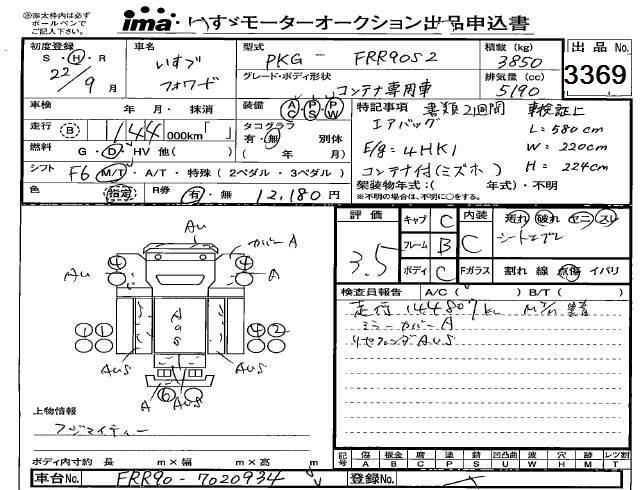 ㊟赤太枠内は必ず
ボールペンで
ご記入下さい。
ima いすゞモーターオークション出品申込書
初度登録
S・H・R
22/9月
車名
いすゞ
フォワード
型式
PKG - FRR90S2
グレード・ボディ形状
コンテナ専用車
積載 (kg)
3850
排気量 (cc)
5190
出品No.
3369
車検 年・月・抹消
装備 AC PS PW
特記事項 書類2週間 車検証上
エアバッグ L=580cm
E/g=4HK1 W=220cm
コンテナ付(ミズホ) H=224cm
走行 B 144 000km「 」
タコグラフ
有・無 別体
( 年 月)
燃料 G・D・HV 他( )
シフト F6 M/T・A/T・特殊 (2ペダル・3ペダル)
架装物年式:( 年式)・不明
※不明の場合は、不明に○をする。
色 指定 R券 有・無 12,180円
評価
3.5
キャブ C
フレーム B
ボディ C
内装 C
汚れ 破れ ヤニ スレ
シートエプレ
Fガラス 割れ 線 点傷 イバリ
Au
カバーA
4 4
Au Au
1 1
A
a
s
4 2
Aus Aus
A 6 Aus
検査員報告 A/C( ) B/T( )
走行144807km
ミラーカバーA
リヤフェンダAus
上物情報
フジマイティー
記号 傷A 板金B 腐C 塗P 錆S 凹凸曲U 波W 穴H 跡M レツ割T
ボディ内寸約 長 m×幅 m×高 m
車台No. FRR90-7020934
登録No.